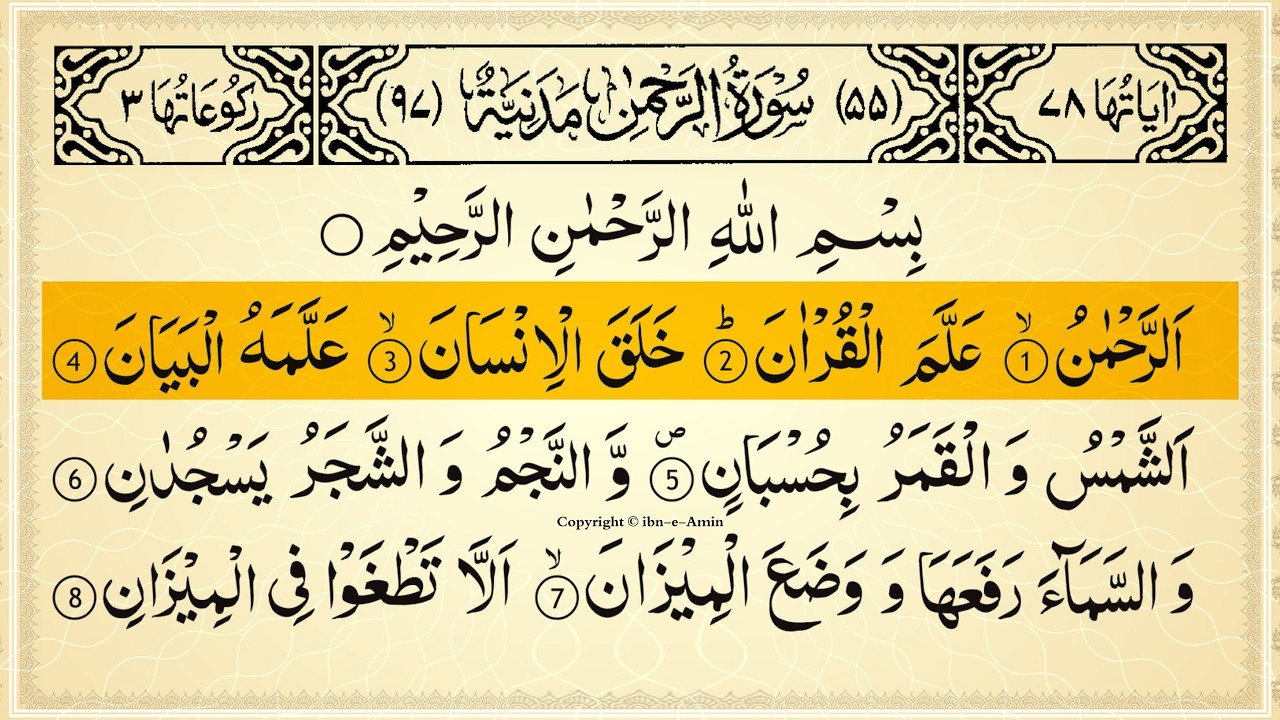 اٰيَاتُهَا ٧٨ (٥٥) سُوْرَةُ الرَّحْمٰنِ مَدَنِيَّةٌ (٩٧) رَكُوْعَاتُهَا ٣
بِسْمِ اللّٰهِ الرَّحْمٰنِ الرَّحِيْمِ ○
اَلرَّحْمٰنُ ۙ ① عَلَّمَ الْقُرْاٰنَ ؕ ② خَلَقَ الْاِنْسَانَ ۙ ③ عَلَّمَهُ الْبَيَانَ ④
اَلشَّمْسُ وَ الْقَمَرُ بِحُسْبَانٍ ۪ ⑤ وَّ النَّجْمُ وَ الشَّجَرُ يَسْجُدٰنِ ⑥
Copyright © ibn-e-Amin
وَ السَّمَآءَ رَفَعَهَا وَ وَضَعَ الْمِيْزَانَ ۙ ⑦ اَلَّا تَطْغَوْا فِی الْمِيْزَانِ ⑧